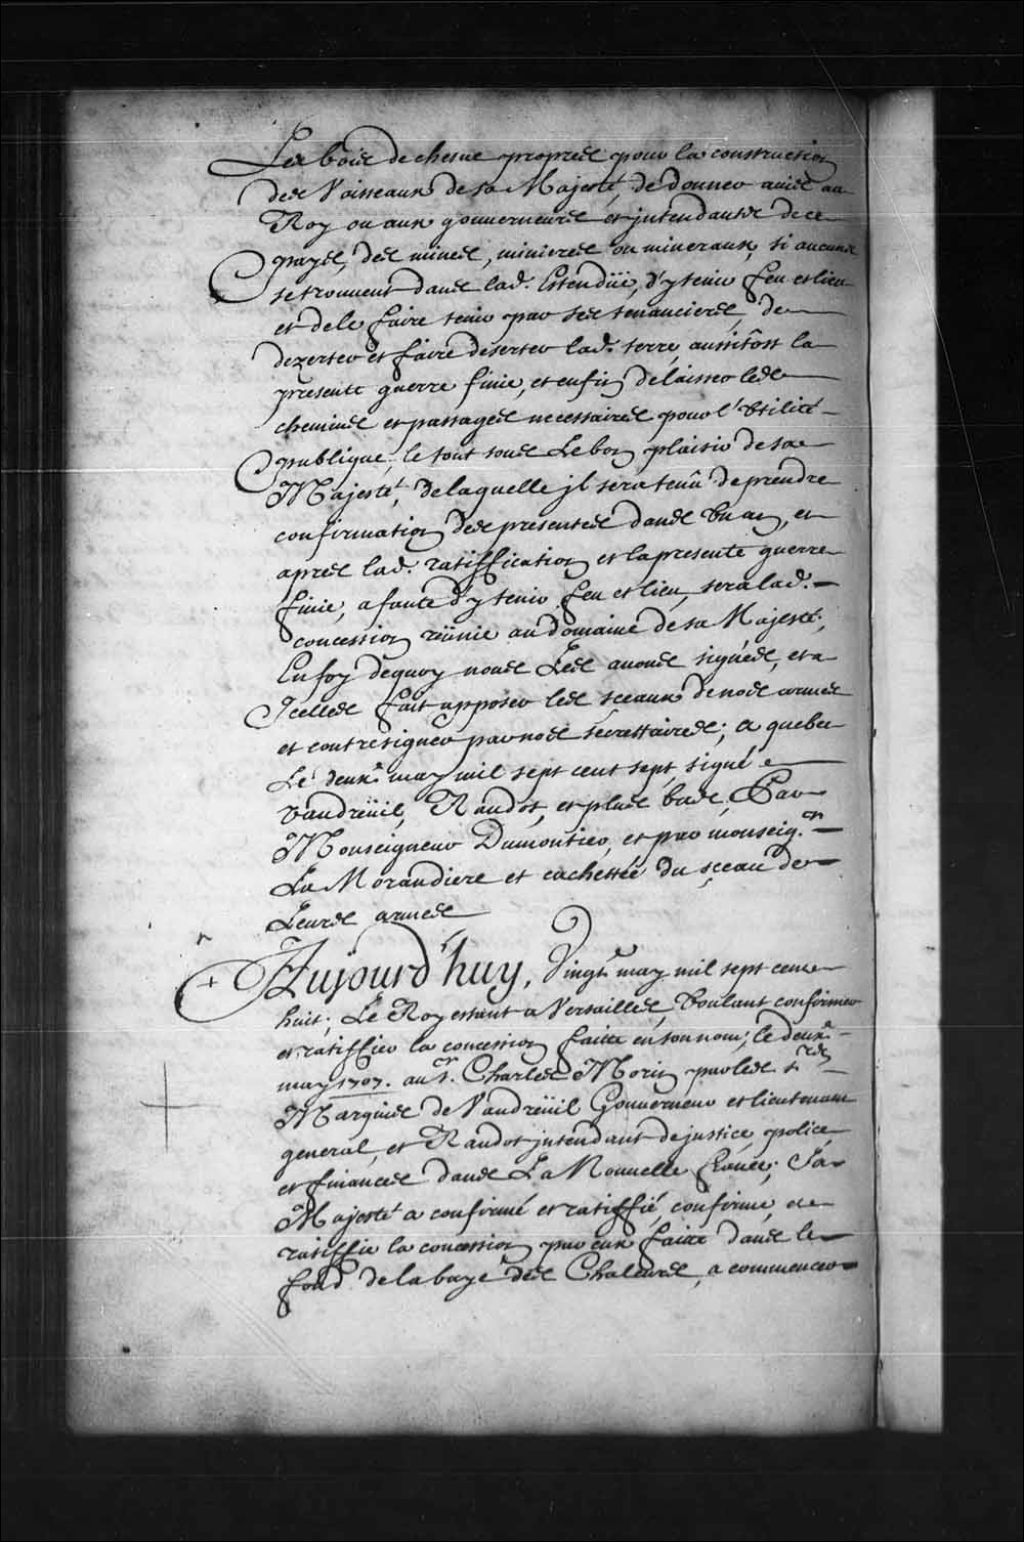 Les bois de chesne propres pour la construction
des Vaisseaux de sa Majesté, de donner avis au
Roy ou aux gouverneurs et jntendants de ce
pays, des mines, minieres ou mineraux, si aucuns
se trouvent dans lad. Estenduë, d'y tenir feu et lieu
et de le faire tenir par ses tenanciers, de
dezerter et faire deserter lad. terre, aussitost la
presente guerre finie, et enfin de laisser les
chemins et passages necessaires pour l'utilité
publique, le tout sous Le bon plaisir de sa
Majesté, de laquelle jl sera tenû de prendre
confirmation des presentes dans Un an, et
apres lad. ratiffication et la presente guerre
finie, a faute d'y tenir feu et lieu, sera lad.
concession reünie au domaine de sa Majesté,
En foy dequoy nous Les avons signées, et a
Jcelles fait apposer les sceaux de nos armes
et contresigner par nos secrettaires; a quebec
Le deux.e may mil sept cent sept, signé
Vaudreüil, Raudot, et plus bas, Par
Monseigneur Dumontier, et par monseig.r
La Morandiere et cachetté du sceau de
Leurs armes
Aujourd'huy, Vingt may mil sept cens
huit; Le Roy estant a Versailles, Voulant confirmer
et ratiffier la concession faitte en son nom, le deux.e
may 1707. au S.r Charles Morin par les s.rs
Marquis de Vaudreüil Gouverneur et lieutenant
general, et Raudot jntendant de justice, police,
et finances dans La Nouvelle france; Sa
Majesté a confirmé et ratiffié, confirme, et
ratiffie la concession par eux faitte dans le
fond de la baye des Chaleurs, a commencer